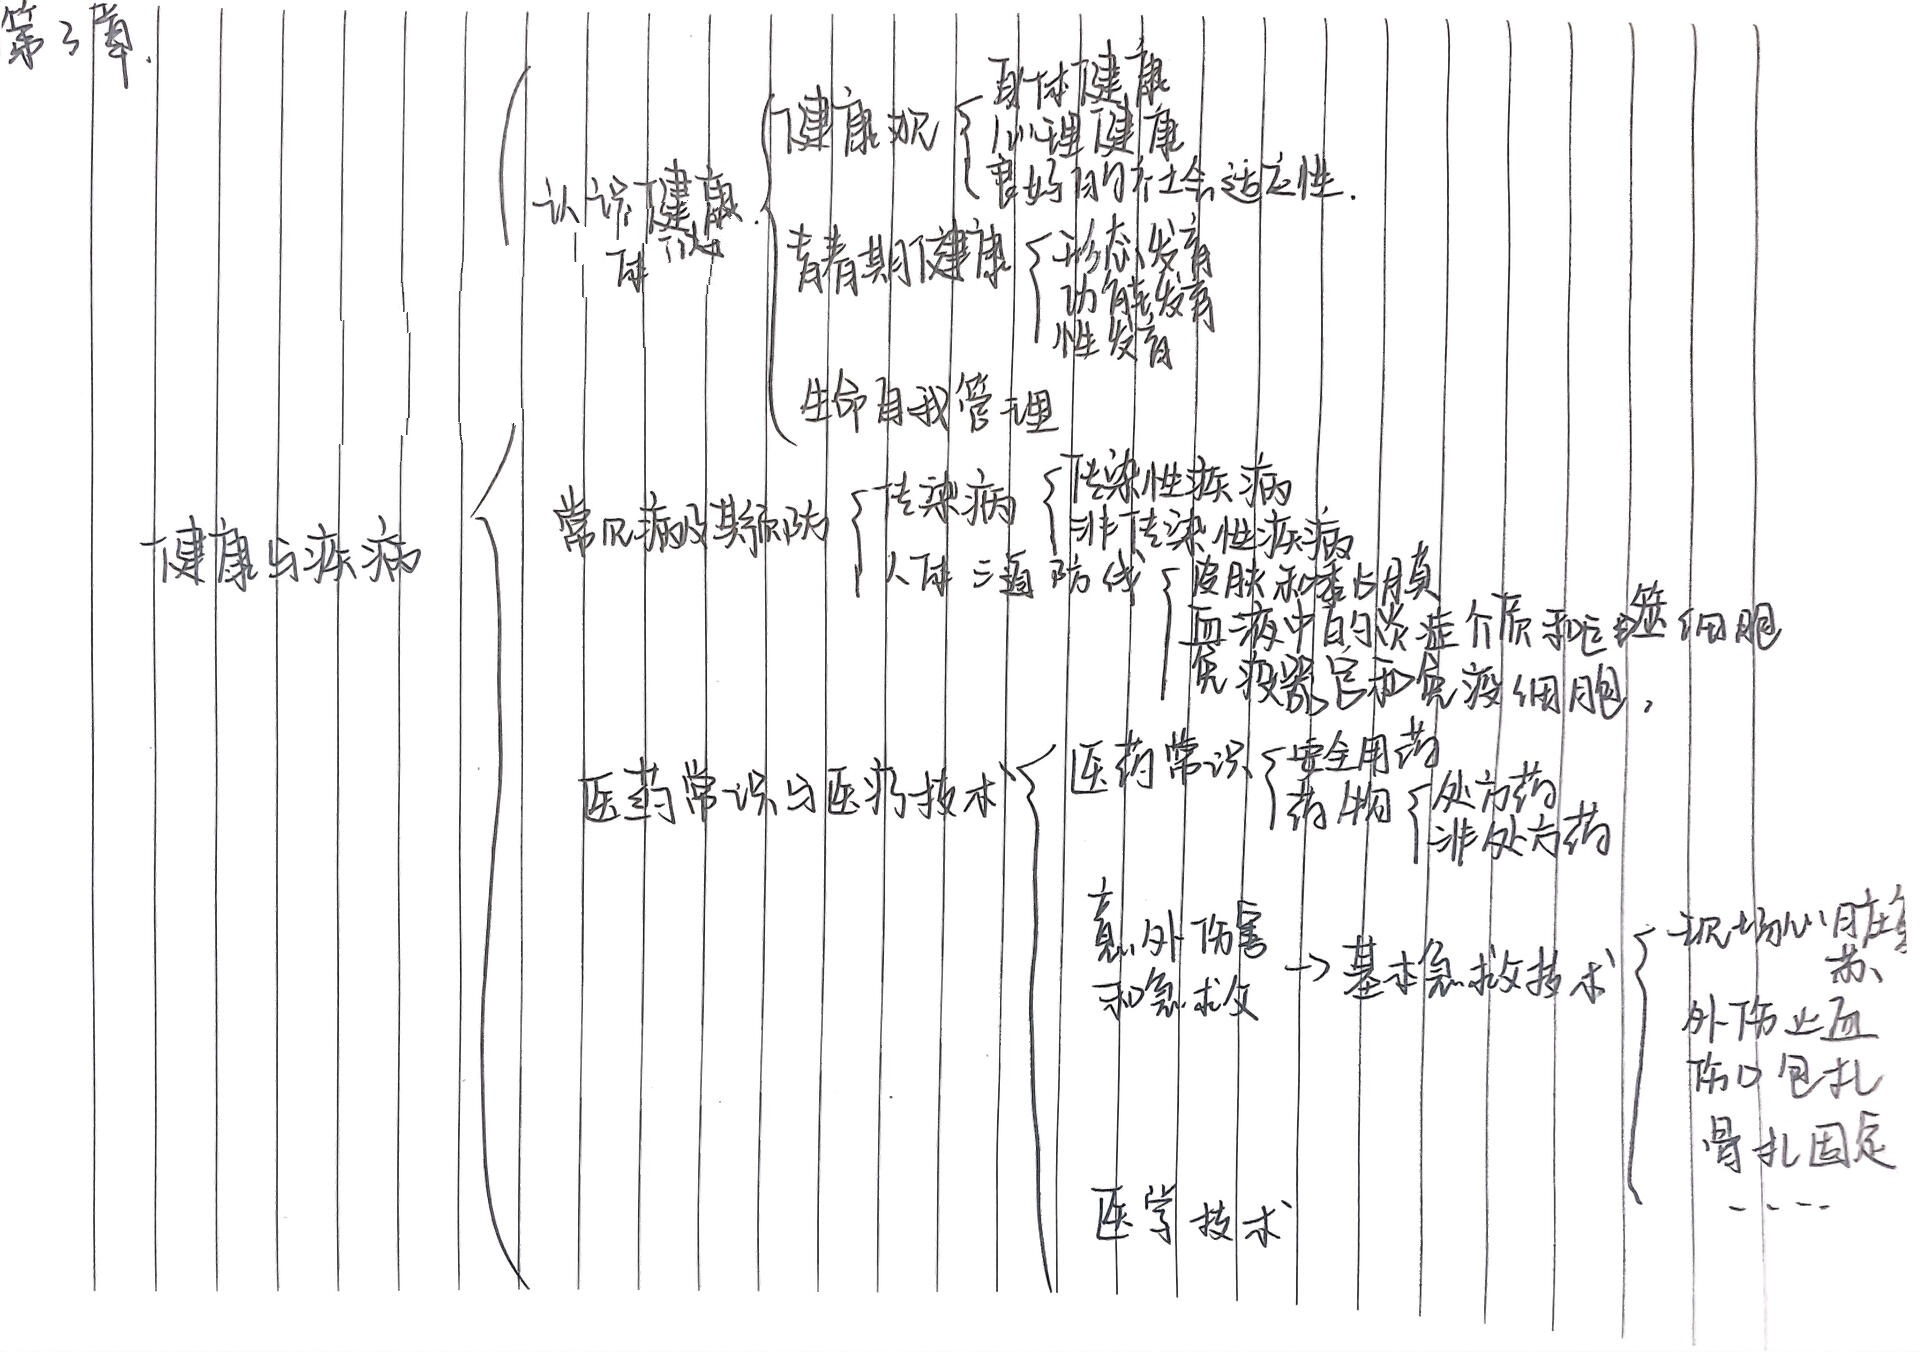 第3章.
身体健康
健康观
心理健康
良好的社会适应性.
认识健康
青春期健康
形态发育
功能发育
性发育
生命自我管理
健康与疾病
常见病及其预防
传染病
传染性疾病
非传染性疾病
人体三道防线
皮肤和黏膜
血液中的炎症介质和吞噬细胞
免疫器官和免疫细胞.
医药常识与医疗技术
医药常识
安全用药
药物
处方药
非处方药
意外伤害
和急救
→基本急救技术
现场心肺复
苏、
外伤止血
伤口包扎
骨扎固定
....
医学技术